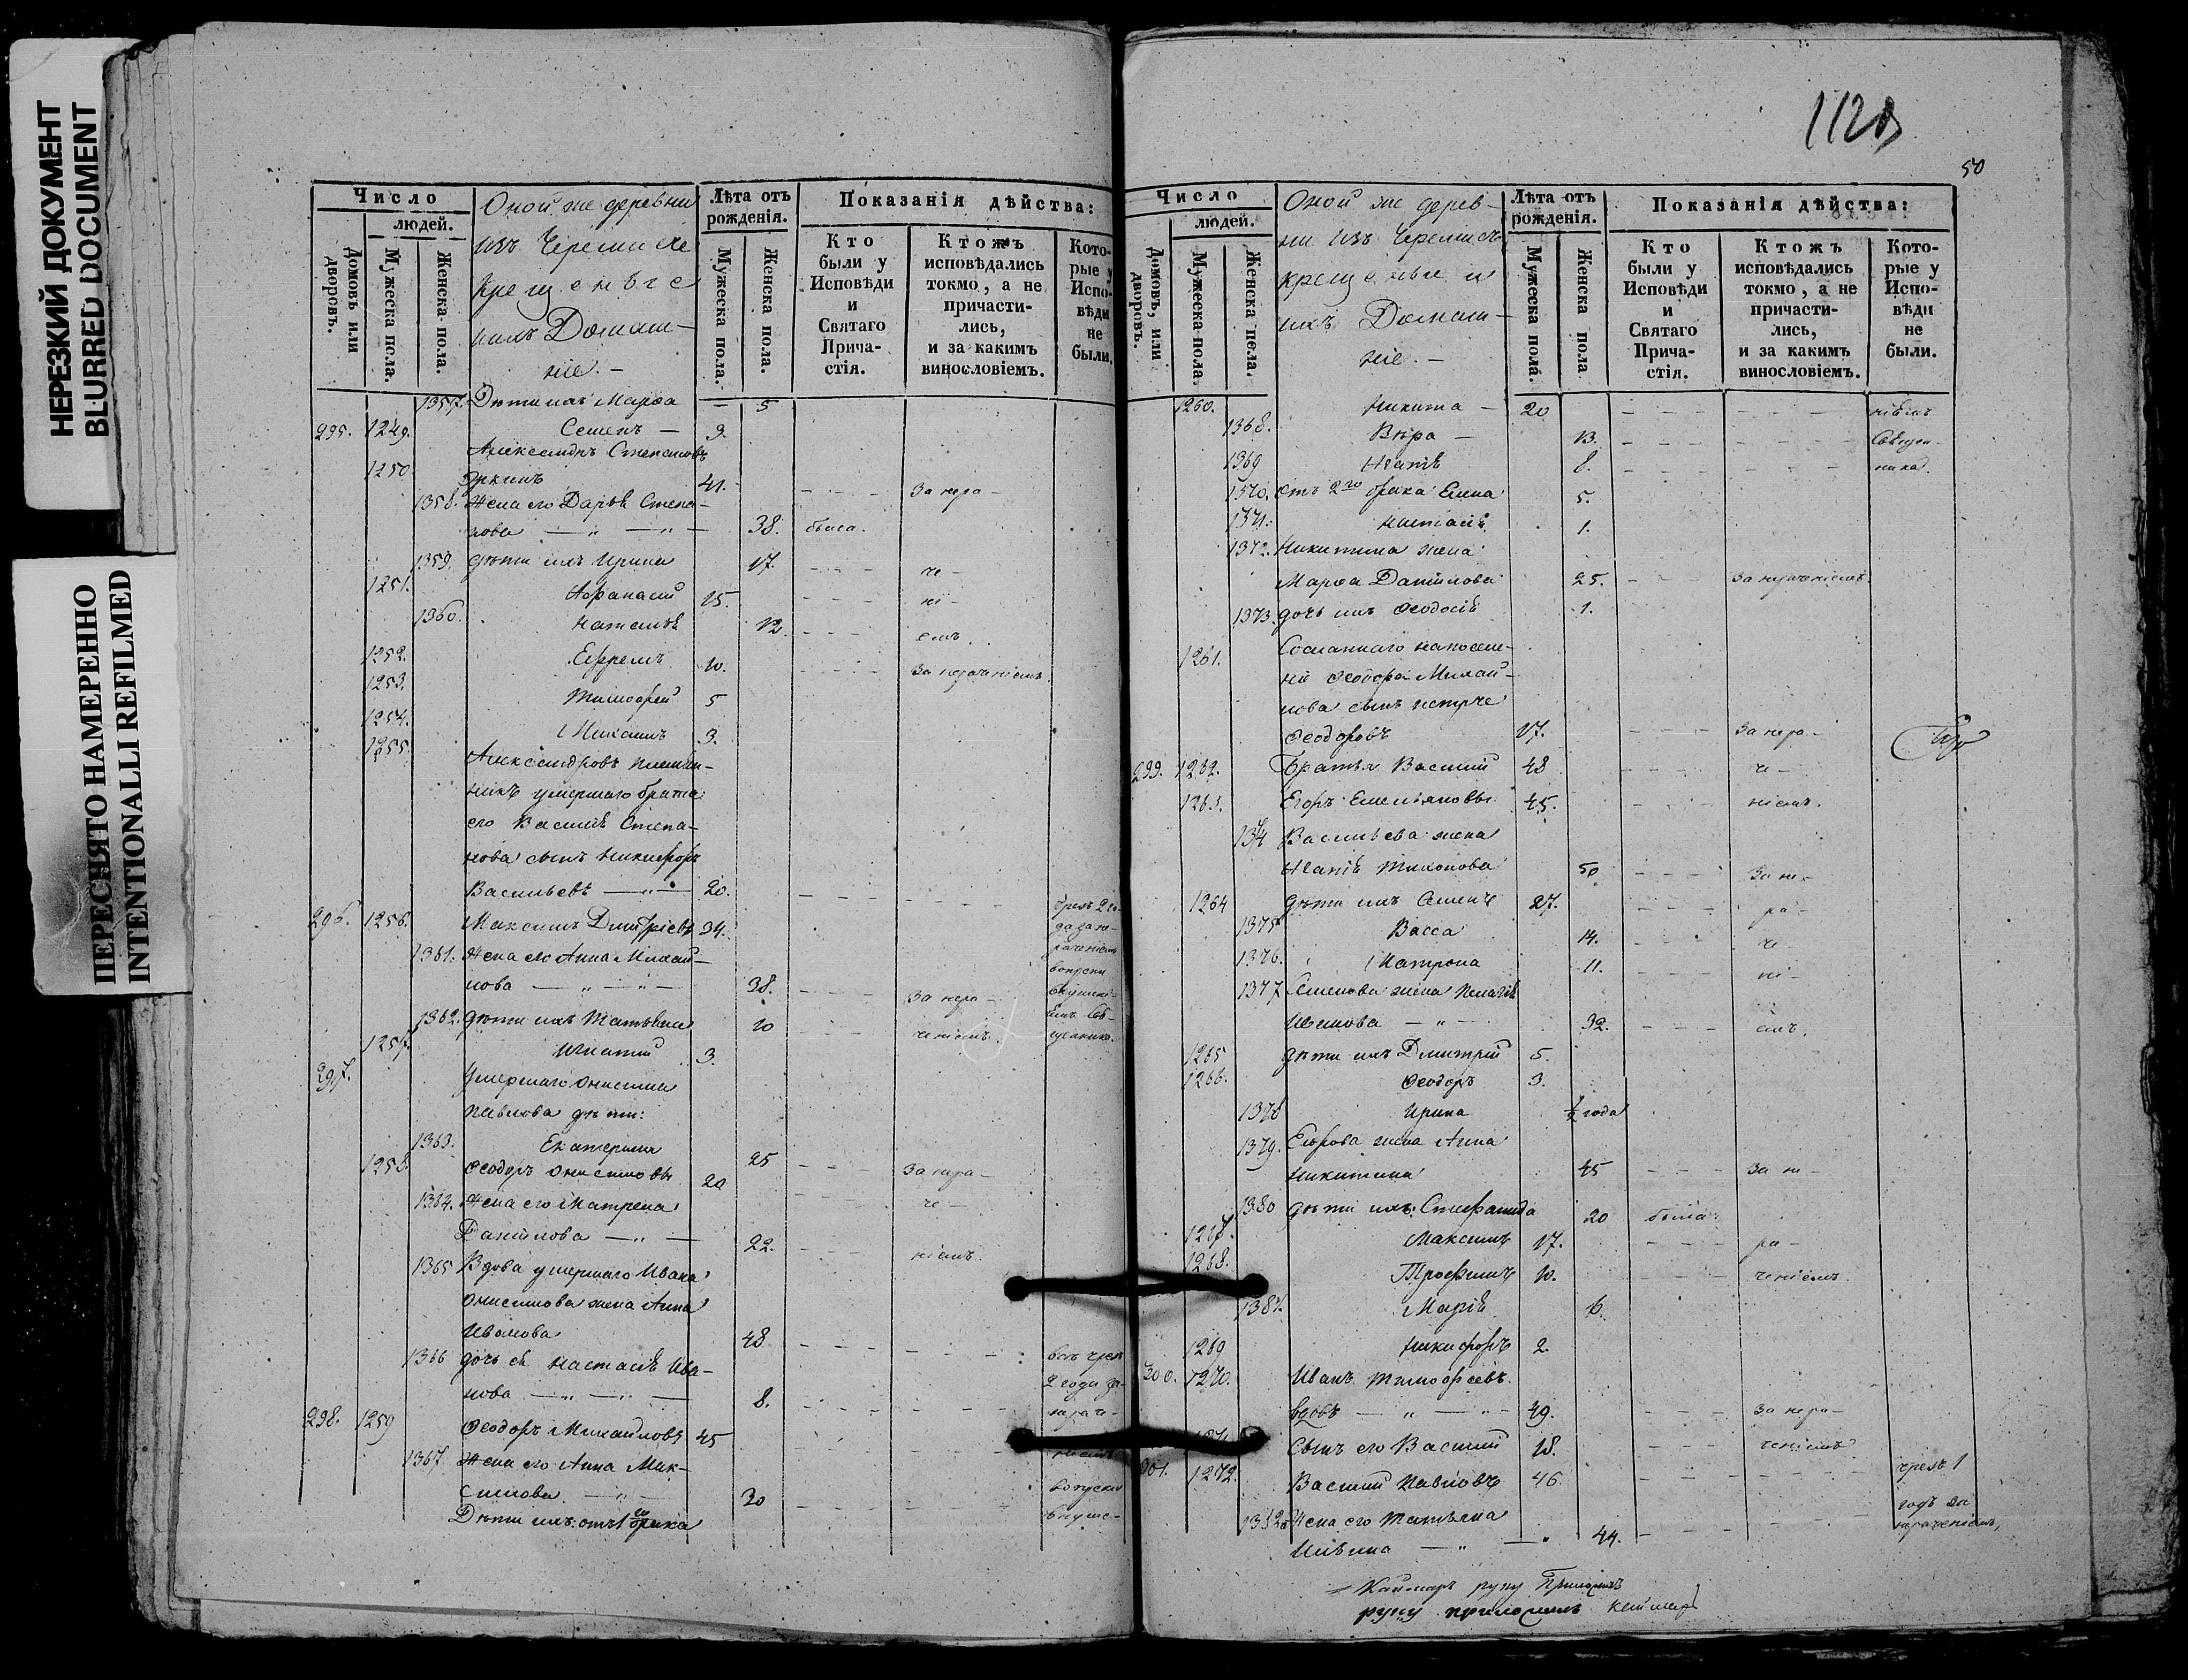 НЕРЕЗКИЙ ДОКУМЕНТ
BLURRED DOCUMENT
ПЕРЕСНЯТО НАМЕРЕННО
INTENTIONALLI REFILMED
Число
людей.
Домовъ или дворовъ.
Мужеска пола.
Женска пола.
Оной же деревни
изъ Черемисъ
крещеные
ихъ Домаш-
ніе. —
Лѣта отъ рожденія.
Мужеска пола.
Женска пола.
Показанія дѣйства:
Кто были у Исповѣди и Святаго Прича-стія.
Ктожъ исповѣдались токмо, а не причасти-лись, и за какимъ винословіемъ.
Кото-рые у Испо-вѣди не были.
1357. Дѣти ихъ Марѳа — 5
295. 1249. Семенъ — 9.
Александръ Степановъ
1250 41. За нера-
1358. Жена его Дарья Степа-
нова — „ — „ — 38. была.
1359. дѣти ихъ Ирина 17. че-
1251. Аѳанасій 15. ні-
1360. Наталья 12. емъ.
1252. Ефремъ 10. За нераченіемъ.
1253. Тимоѳей 5
1254. Михаилъ 3.
1255. Александровъ племян-
никъ умершаго брата
его Василія Степа-
нова сынъ Никифоръ
Васильевъ — „ — 20.
296. 1256. Максимъ Дмитріевъ 34.
чрезъ 2 го-
да за не-
раченіемъ
вопреки
внушені-
1361. Жена его Анна Михай-
лова — „ — „ — 38. За нера-
1362. дѣти ихъ Татьяна 10 ченіемъ.
1257. Игнатій 3.
297. Умершаго Онисима
Павлова дѣти:
1363. Екатерина 25 За нера-
1258. Ѳеодоръ Онисимовы 20
1364. Жена его Матрена че-
Данилова — „ — 22. ніемъ.
1365 Вдова умершаго Ивана
Онисимова жена Анна
Иванова 48
1366 дочь ея Настасья Ива-
нова — „ — „ — 8.
298. 1259 Ѳеодоръ Михайловъ 45
2 года за
нераче-
ніемъ
вопреки
внуше-
1367 Жена его Анна Мак-
симова — „ — 30
Дѣти ихъ: отъ 1го брака
1128
50
Число
людей.
Домовъ, или дворовъ.
Мужеска пола.
Женска пола.
Оной же дерев-
ни изъ Черемисъ
крещеные и
ихъ Домаш-
ніе. —
Лѣта отъ рожденія.
Мужеска пола.
Женска пола
Показанія дѣйства:
Кто были у Исповѣди и Святаго Прича-стія.
Ктожъ исповѣдались токмо, а не причасти-лись, и за какимъ винословіемъ.
Кото-рые у Испо-вѣди не были.
1260. Никита — 20 ніямъ
1368. Вѣра — 13. Священ-
1369 8. ника.
1370. отъ 2го брака Елена 5.
1371. Настасья 1.
1372. Никитина жена
Марѳа Данилова 25. За нераченіемъ.
1373. дочь ихъ Ѳеодосія 1.
1261. Сосланнаго на поселе-
ніе Ѳеодора Михай-
лова сынъ
Ѳеодоровъ 17. За нера-
299. 1262. Братья Василій 48 че-
1263. Егоръ Емельяновы 45. ніемъ.
1374 Васильева жена
Тихонова 50 За не-
1264 дѣти ихъ Семенъ 27. ра-
1375 Васса 14. че-
1376. Матрона 11. ні-
1377 Семенова жена Пелагія
Иванова — „ — 32. емъ.
1265 дѣти ихъ Дмитрій 5.
1266. Ѳеодоръ 3.
1378 Ирина ½ года
1379. Егорова жена Анна
Никитина 45 За не-
1380 дѣти ихъ: Стефанида 20 была.
1267. Максимъ 17. ра-
1268. Трофимъ 10. ченіемъ
1381. Марія 6.
1269 Никифоръ 2.
300. 1270. Иванъ Тимоѳеевъ
вдовъ — „ — „ — 49. За нера-
1271 Сынъ его Василій 18. ченіемъ
301. 1272. Василій Павловъ 46. чрезъ 1
годъ за
нераченіемъ,
1382. Жена его Татьяна
Ильина — „ — „ 44.
руку приложилъ